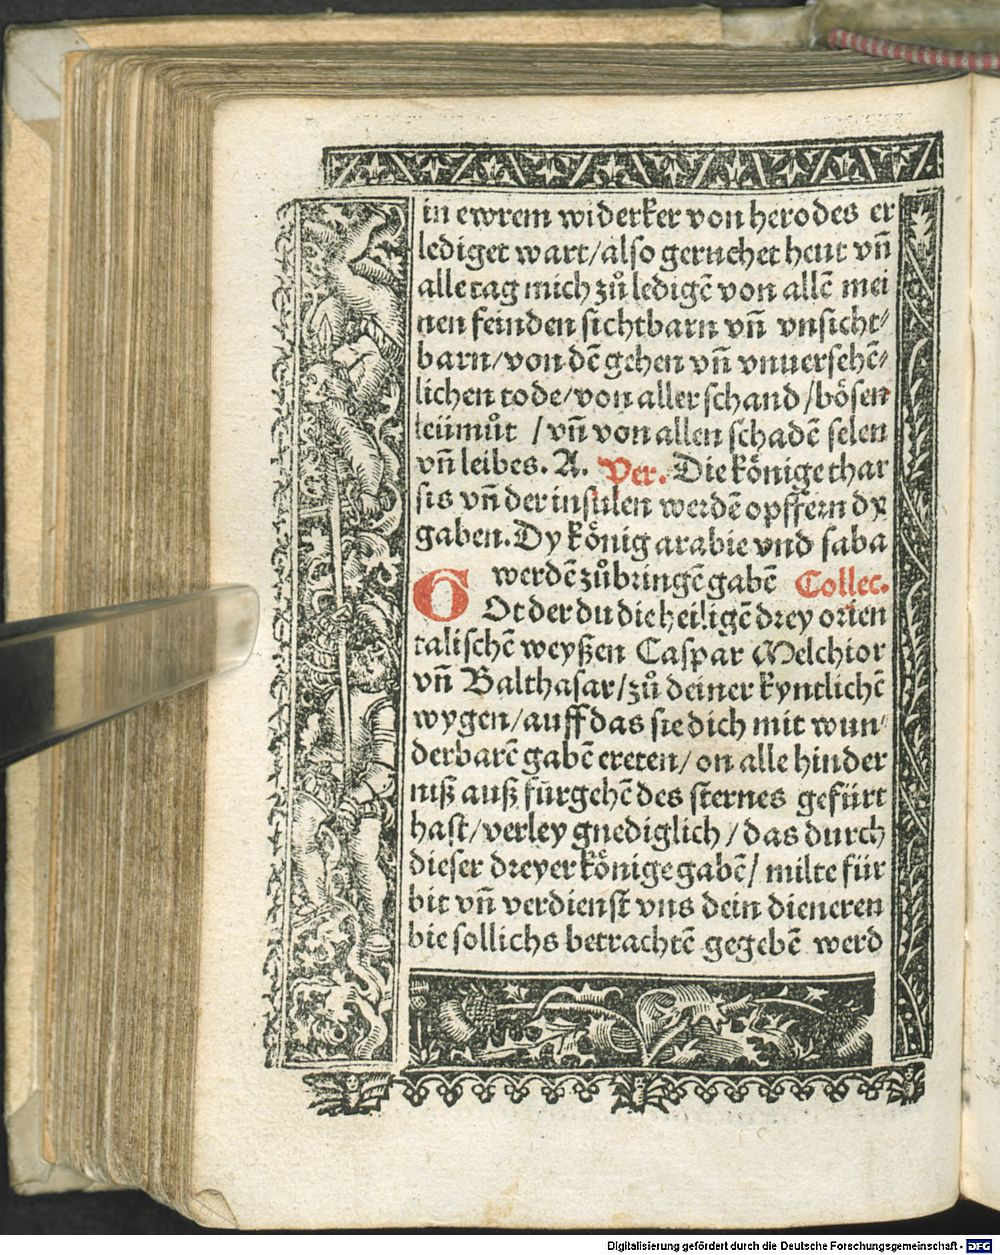 in ewrem widerker von herodes er
lediget wart/also geruchet heut vn̄
alle tag mich zů ledigē von allē mei
nen feinden sichtbarn vn̄ vnsicht⸗
barn/von dē gehen vn̄ vnuersehē⸗
lichen tode/von aller schand/bösen
leümůt /vn̄ von allen schadē selen
vn̄ leibes. A. Ver. Die könige thar
sis vn̄ der insulen werdē opffern dy
gaben. Dy könig arabie vnd saba
werdē zůbringē gabē Collec.
GOt der du die heiligē drey orien
talischē weyßen Caspar Melchior
vn̄ Balthasar/zů deiner kyntlichē
wygen/auff das sie dich mit wun⸗
derbarē gabē ereten/on alle hinder
niß auß fürgehē des sternes gefürt
hast/verley gnediglich/das durch
dieser dreyer könige gabē/milte für
bit vn̄ verdienst vns dein dieneren
die sollichs betrachtē gegebē werd
Digitalisierung gefördert durch die Deutsche Forschungsgemeinschaft - DFG